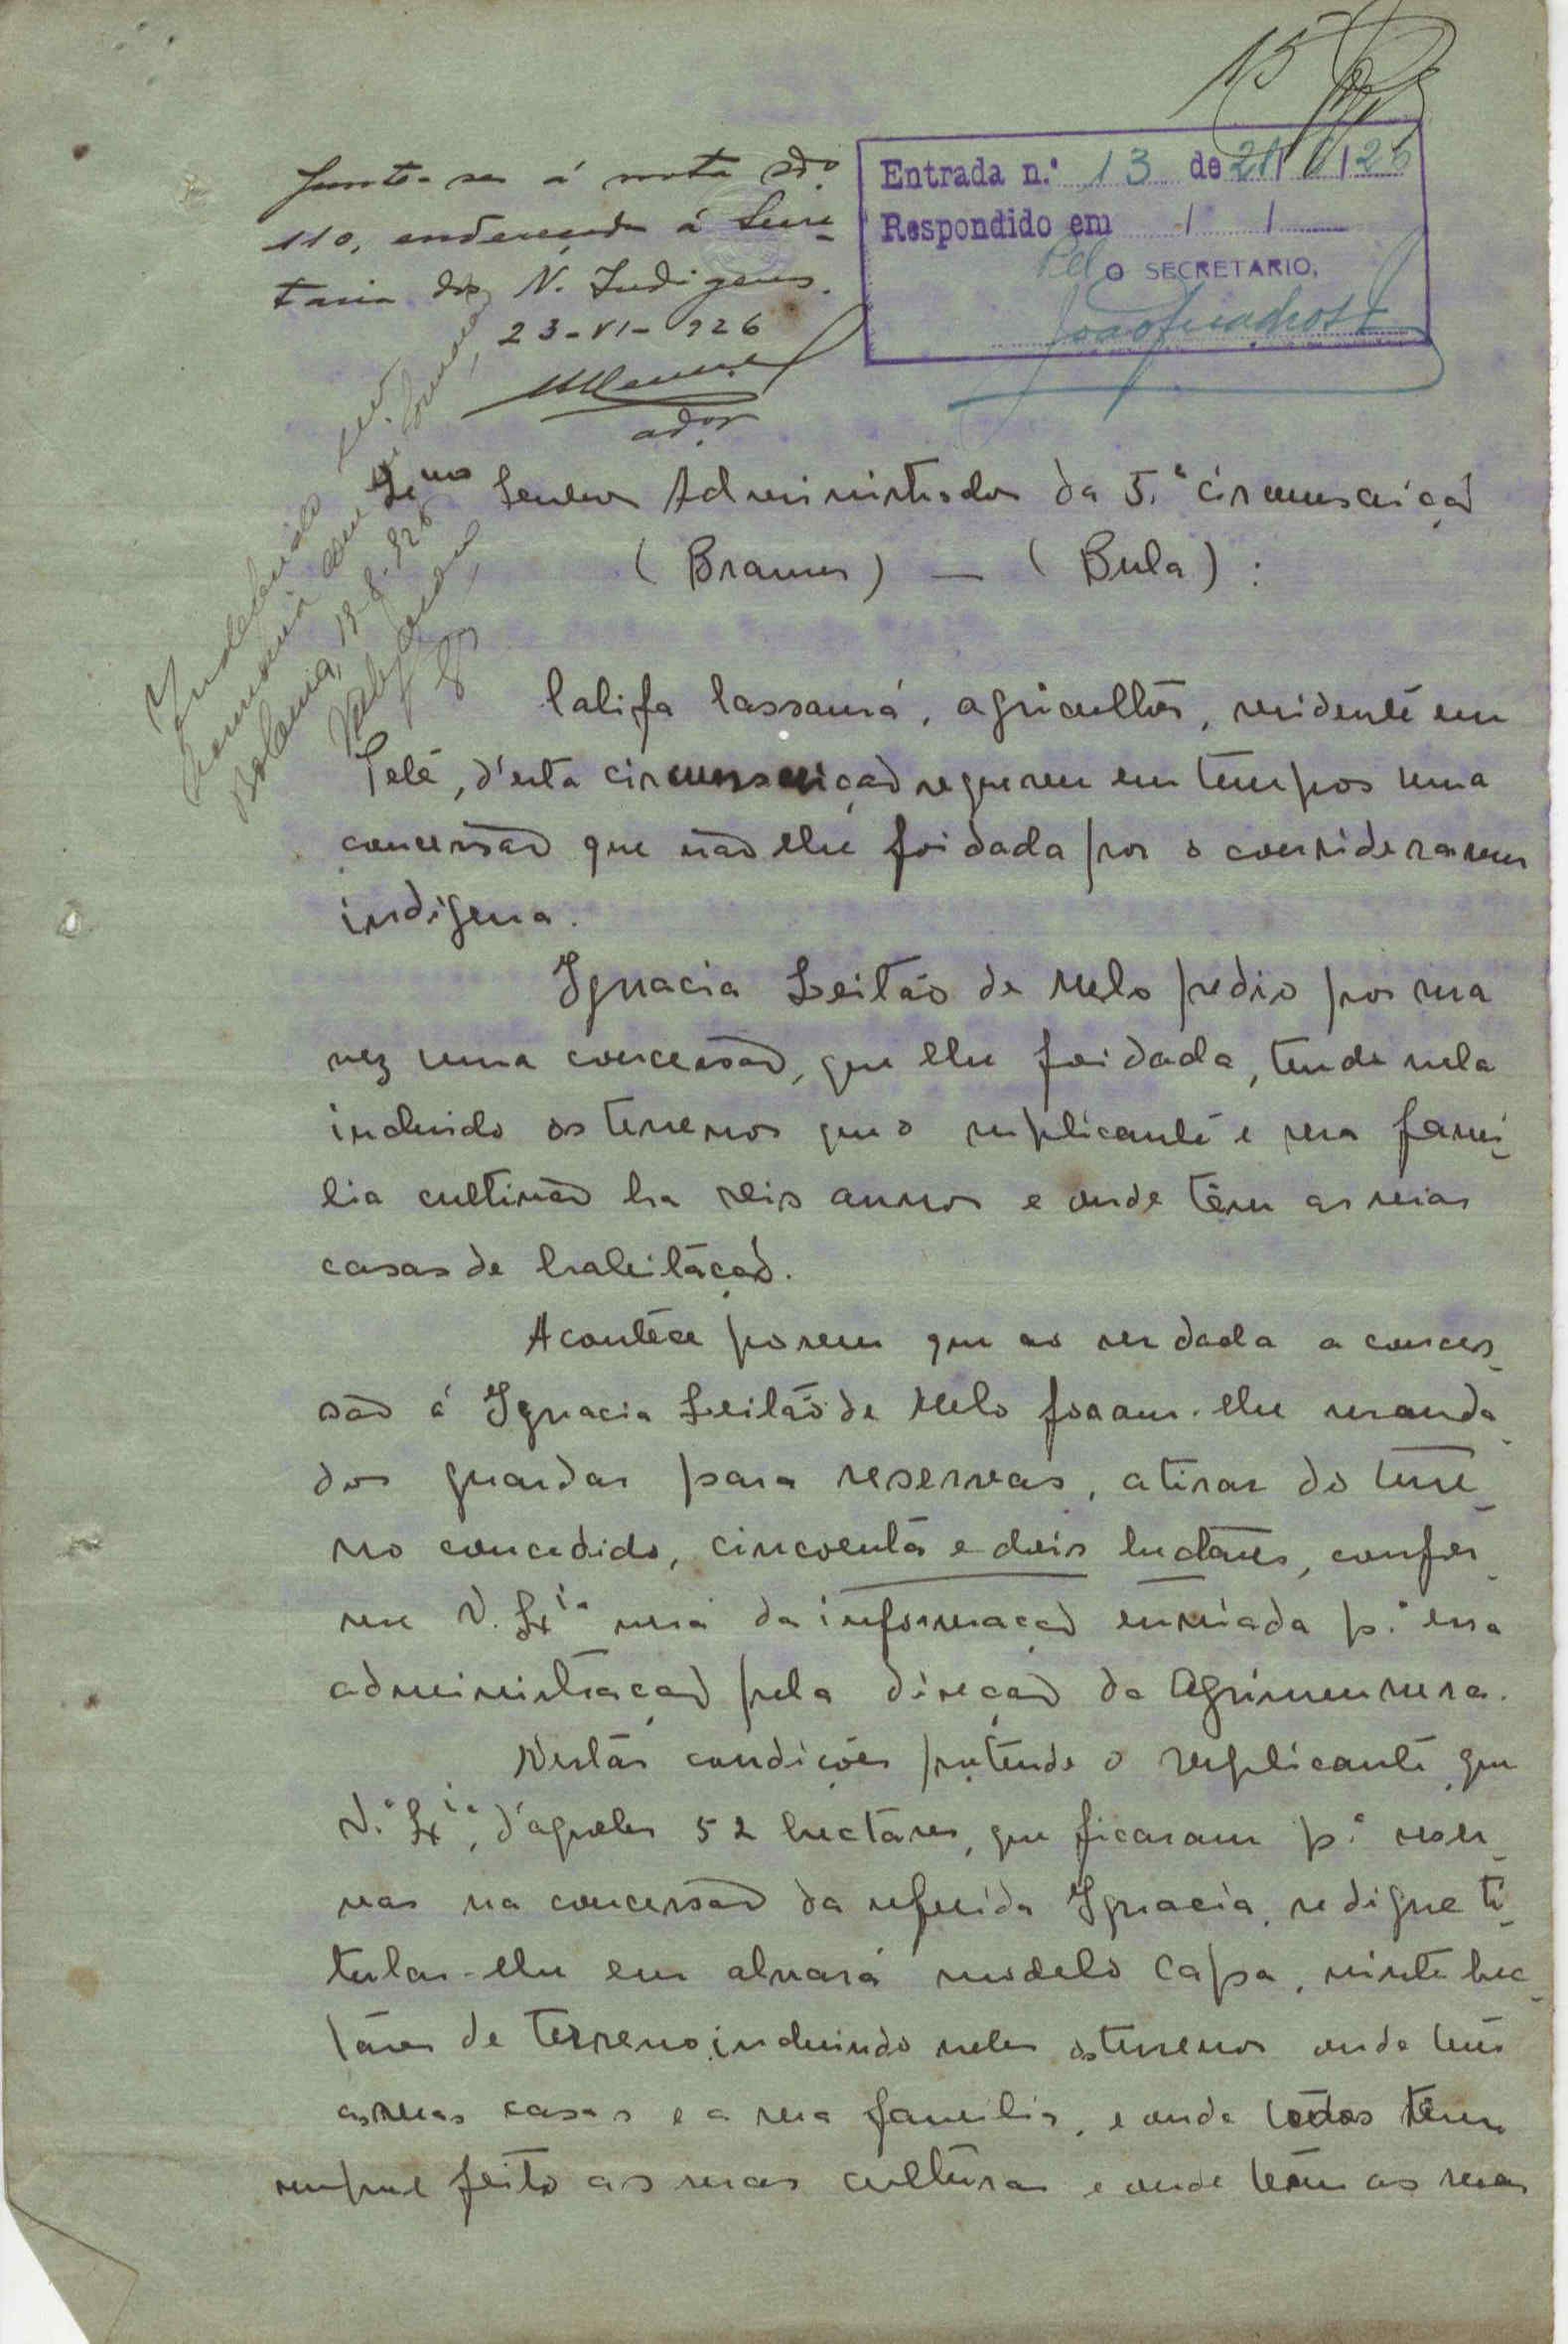 15
Junte-se á nota Nº
110, endereçada á Secre-
taria dos N. Indigenas.
23-VI-926
adºr
Entrada n.º 13 de 21/6/26
Respondido em / /
Pel O SECRETARIO,
Indeferido
Bolama, 13-8-926
Exmo Senhor Administrador da 5.ª circunscrição
(Brames) — (Bula):
Califa Cassamá, agricultôr, residente em
Pelé, d'esta circunscrição requereu em tempos uma
concessão que não lhe foi dada por o considerarem
indigena.
Ignacia Leitão de Melo pedio por sua
vez uma concessão, que lhe foi dada, tendo nela
incluido os terrenos que o suplicante e sua fami-
lia cultivão ha seis annos e onde têm as suas
casas de habitação.
Acontece porem que ao ser dada a conces-
são á Ignacia Leitão de Melo foram-lhe manda-
dos guardar para reservas, a tirar do terre-
no concedido, cincoenta e dois hectares, confor-
me V. Exia verá da informação enviada p.ª essa
administração pela direção da Agrimensura.
Nestas condições pretende o suplicante que
V.ª Exia, d'aqueles 52 hectares, que ficaram p.ª reser-
vas na concessão da referida Ignacia, se digne ti-
tular-lhe em alvará modelo Capa, vinte hec-
táres de terreno, incluindo neles os terrenos onde tem
as suas casas e a sua familia, e onde todos têem
sempre feito as suas culturas e onde teem as suas